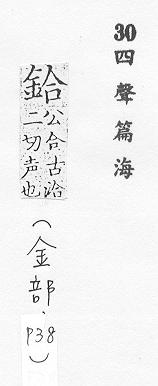 30四聲篇海
鉿公合古洽
二切声也
(金部、
P38)